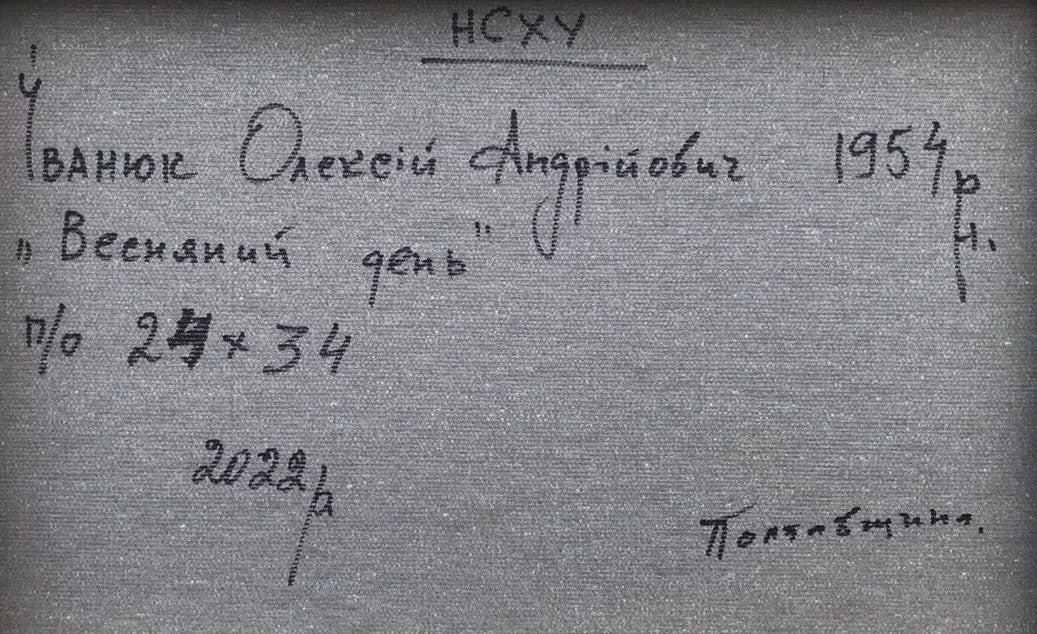 НСХУ
Іванюк Олексій Андрійович 1954 р.н.
"Весняний день"
п/о 24 х 34
2022р
Полтавщина.